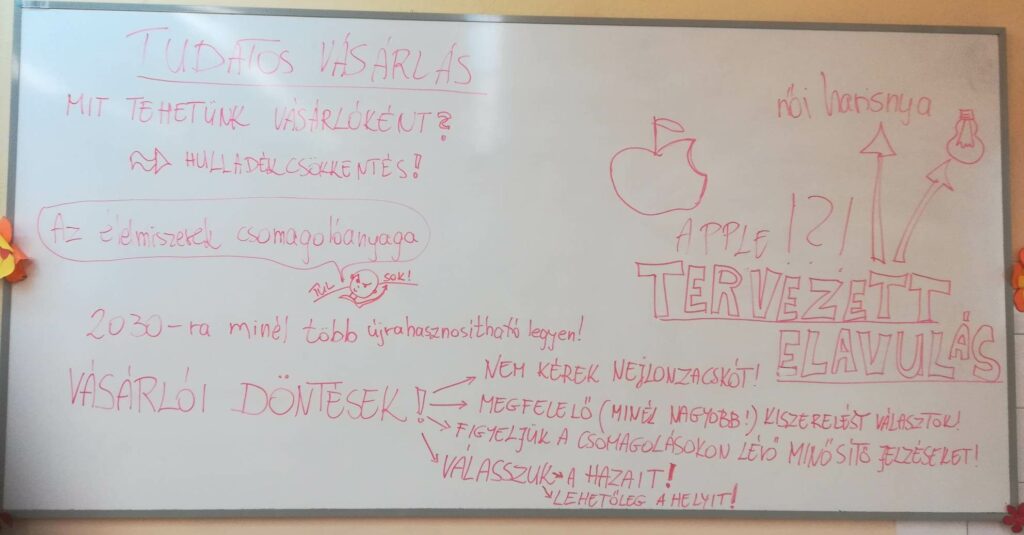 TUDATOS VÁSÁRLÁS
MIT TEHETÜNK VÁSÁRLÓKÉNT?
HULLADÉKCSÖKKENTÉS!
Az élelmiszerek csomagolóanyaga
TÚL SOK!
2030-ra minél több újrahasznosítható legyen!
VÁSÁRLÓI DÖNTÉSEK!
NEM KÉREK NEJLONZACSKÓT!
MEGFELELŐ (MINÉL NAGYOBB!) KISZERELÉST VÁLASZTOK!
FIGYELJÜK A CSOMAGOLÁSOKON LÉVŐ MINŐSÍTŐ JELZÉSEKET!
VÁLASSZUK A HAZAIT!
LEHETŐLEG A HELYIT!
női harisnya
APPLE !?!
TERVEZETT
ELAVULÁS